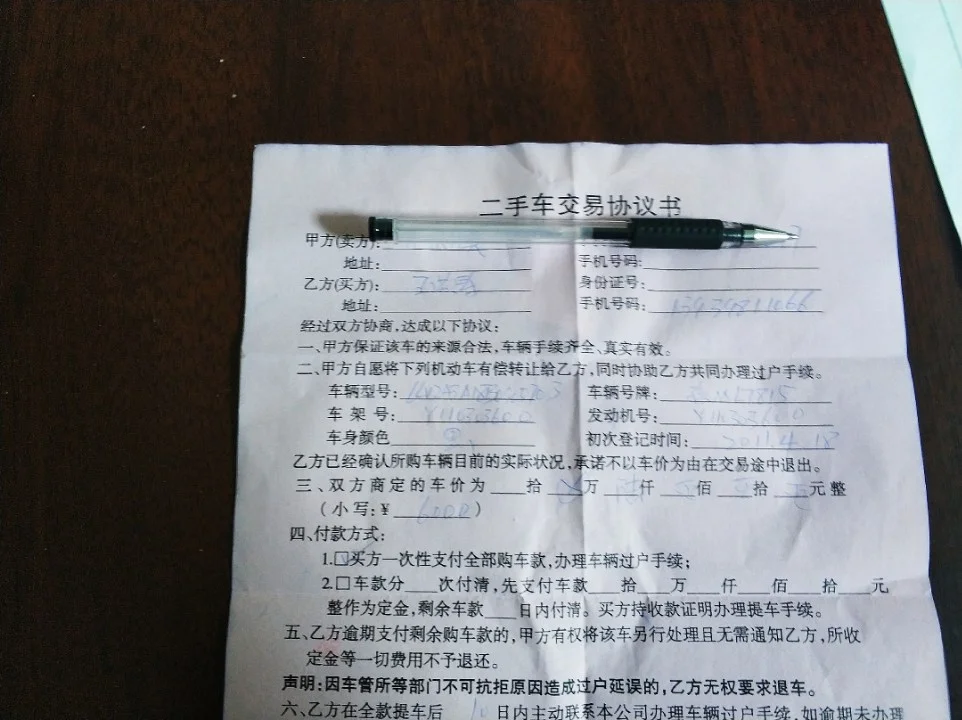 二手车交易协议书
甲方(卖方):
地址: 手机号码:
乙方(买方): 身份证号:
地址: 手机号码:
经过双方协商,达成以下协议:
一、甲方保证该车的来源合法,车辆手续齐全、真实有效。
二、甲方自愿将下列机动车有偿转让给乙方,同时协助乙方共同办理过户手续。
车辆型号: 车辆号牌:
车架号: 发动机号:
车身颜色 初次登记时间: 2011.4.18
乙方已经确认所购车辆目前的实际状况,承诺不以车价为由在交易途中退出。
三、双方商定的车价为 拾 万 仟 佰 拾 元整
(小写:¥ )
四、付款方式:
1.☑买方一次性支付全部购车款,办理车辆过户手续;
2.□车款分 次付清,先支付车款 拾 万 仟 佰 拾 元
整作为定金,剩余车款 日内付清。买方持收款证明办理提车手续。
五、乙方逾期支付剩余购车款的,甲方有权将该车另行处理且无需通知乙方,所收
定金等一切费用不予退还。
声明:因车管所等部门不可抗拒原因造成过户延误的,乙方无权要求退车。
六、乙方在全款提车后 10 日内主动联系本公司办理车辆过户手续,如逾期未办理